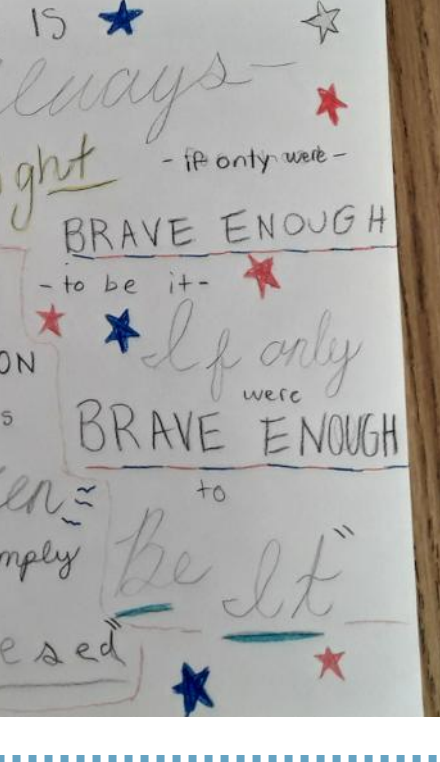 IS
always-
ght
- if only were -
BRAVE ENOUGH
- to be it -
If only
ON
were
s
BRAVE ENOUGH
en
to
mply
Be It"
esed"